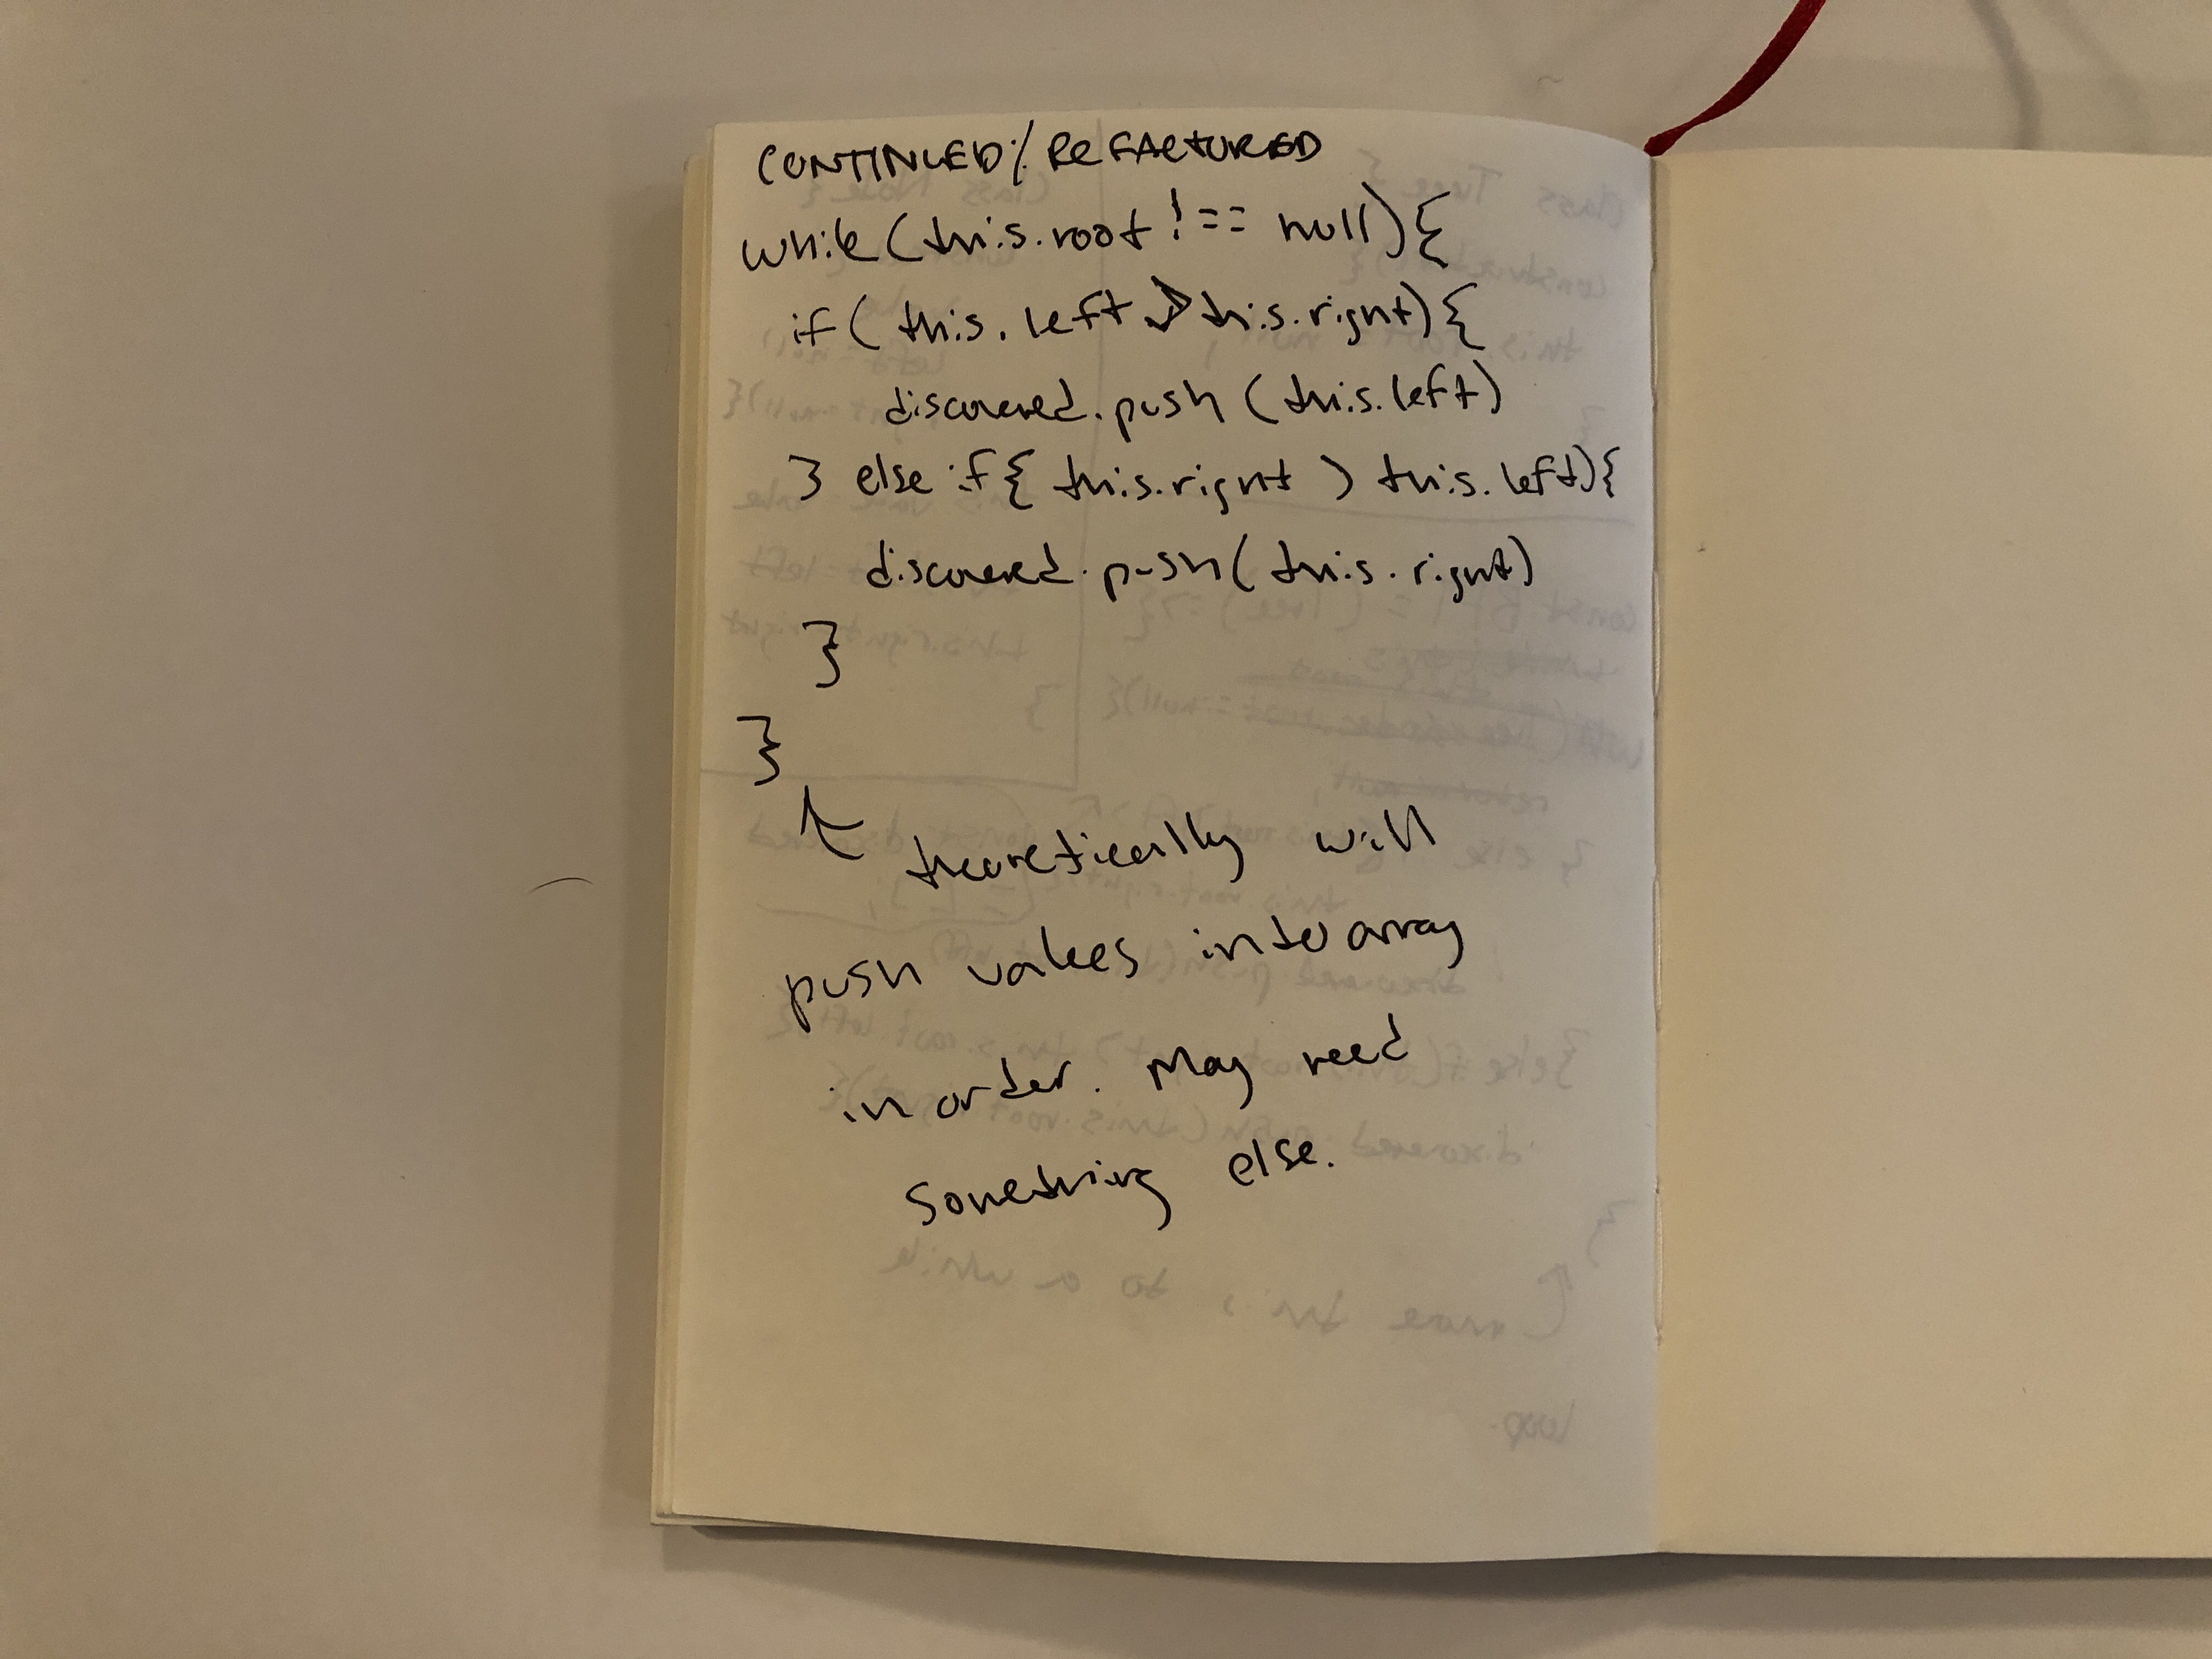 CONTINUED / REFACTURED
while (this.root !== null){
if ( this. left > this.right){
discovered.push (this.left)
} else if{ this.right > this. left){
discovered.push(this.right)
}
}
theoretically will
push values into array
in order. May need
something else.